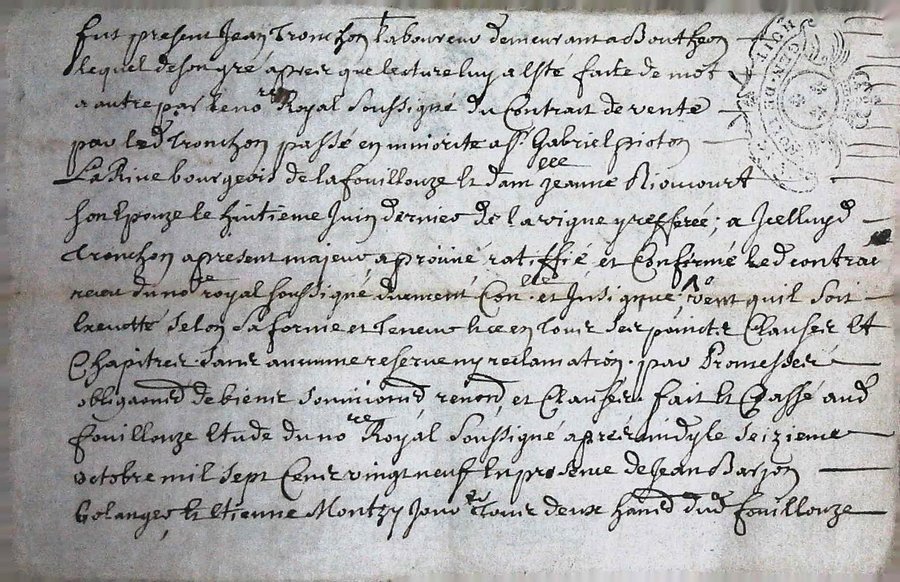 fut present Jean Tronchon laboureur demeurant a Boutheon
lequel de son gré apres que lecture luy a esté faite de mot
a autre par le no.re Royal soussigné du Contrait de vente
par led Tronchon passé en minorite a s.r Gabriel pioton
La Rive bourgeois de la fouillouze et dam.elle Jeanne Riocourt
son Epouze le huitieme Juin dernier de la vigne y refferée; a Icelluy d
Tronchon apresent majeur aprouvé ratiffié et Confirmé led contrat
receu du no.re royal soussigné duement Con.llé et Insignué veut quil soit
Execuotté selon sa forme et teneur et ce en tous ses points Clauses Et
Chapitres sans aucune reserve ny reclamation. par Promesses
obligaond de biens soumiond renond et Clauses. fait et Passé aud
fouillouze Etude du no.re Royal soussigné apres midy le seizieme
octobre mil sept Cens vingt neuf En presence de Jean Barjon
bolanger Et Etienne Montzy tous deux hand dud fouillouze